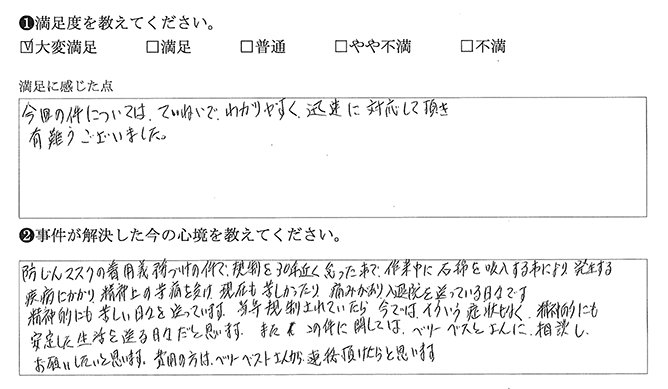 ❶満足度を教えてください。
☑大変満足 □満足 □普通 □やや不満 □不満
満足に感じた点
今回の件については、ていねいで、わかりやすく、迅速に対応して頂き
有難うございました。
❷事件が解決した今の心境を教えてください。
防じんマスクの着用義務づけの件で、規制を30年近く怠った事で、作業中に石綿を吸入する事により発生する
疾病にかかり、精神上の苦痛を受け、現在も苦しかったり、痛みがあり入退院を送っている日々です
精神的にも苦しい日々を送っています。 規制されていたら今では、こういう症状もなく、精神的にも
安定した生活を送る日々だと思います。また この件に関しては、ベリーベストさんに、相談し
お願いしたいと思います。費用の方は、ベリーベストさんから、連絡頂けたらと思います